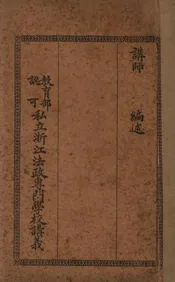 講師　編述
教育部認可私立浙江法政專門學校講義